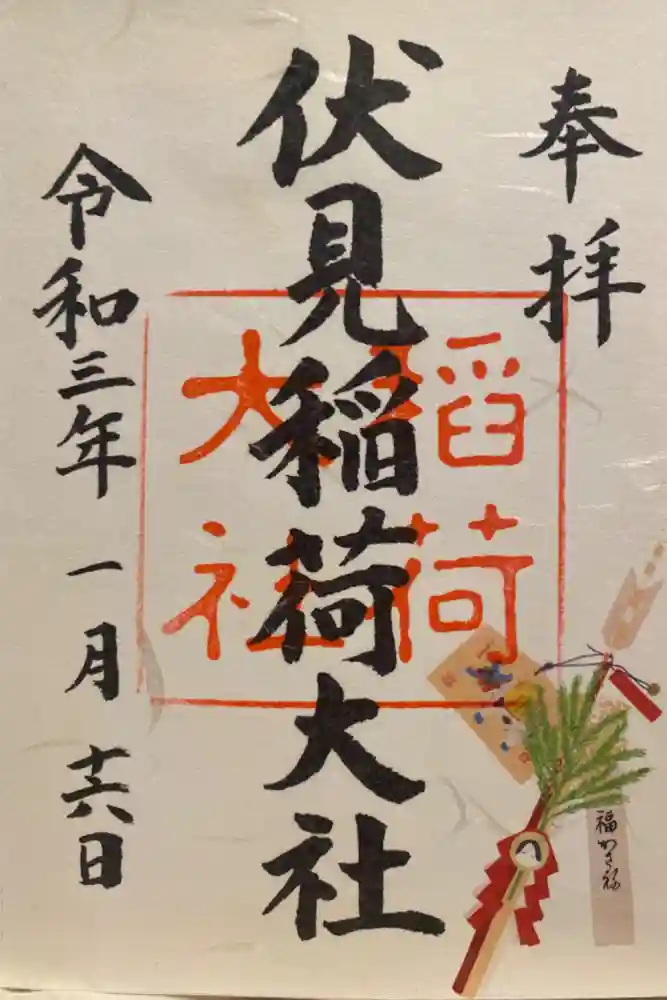 奉拝
伏見稲荷大社
稲荷
大社
令和三年 一月 十六日
福かさね